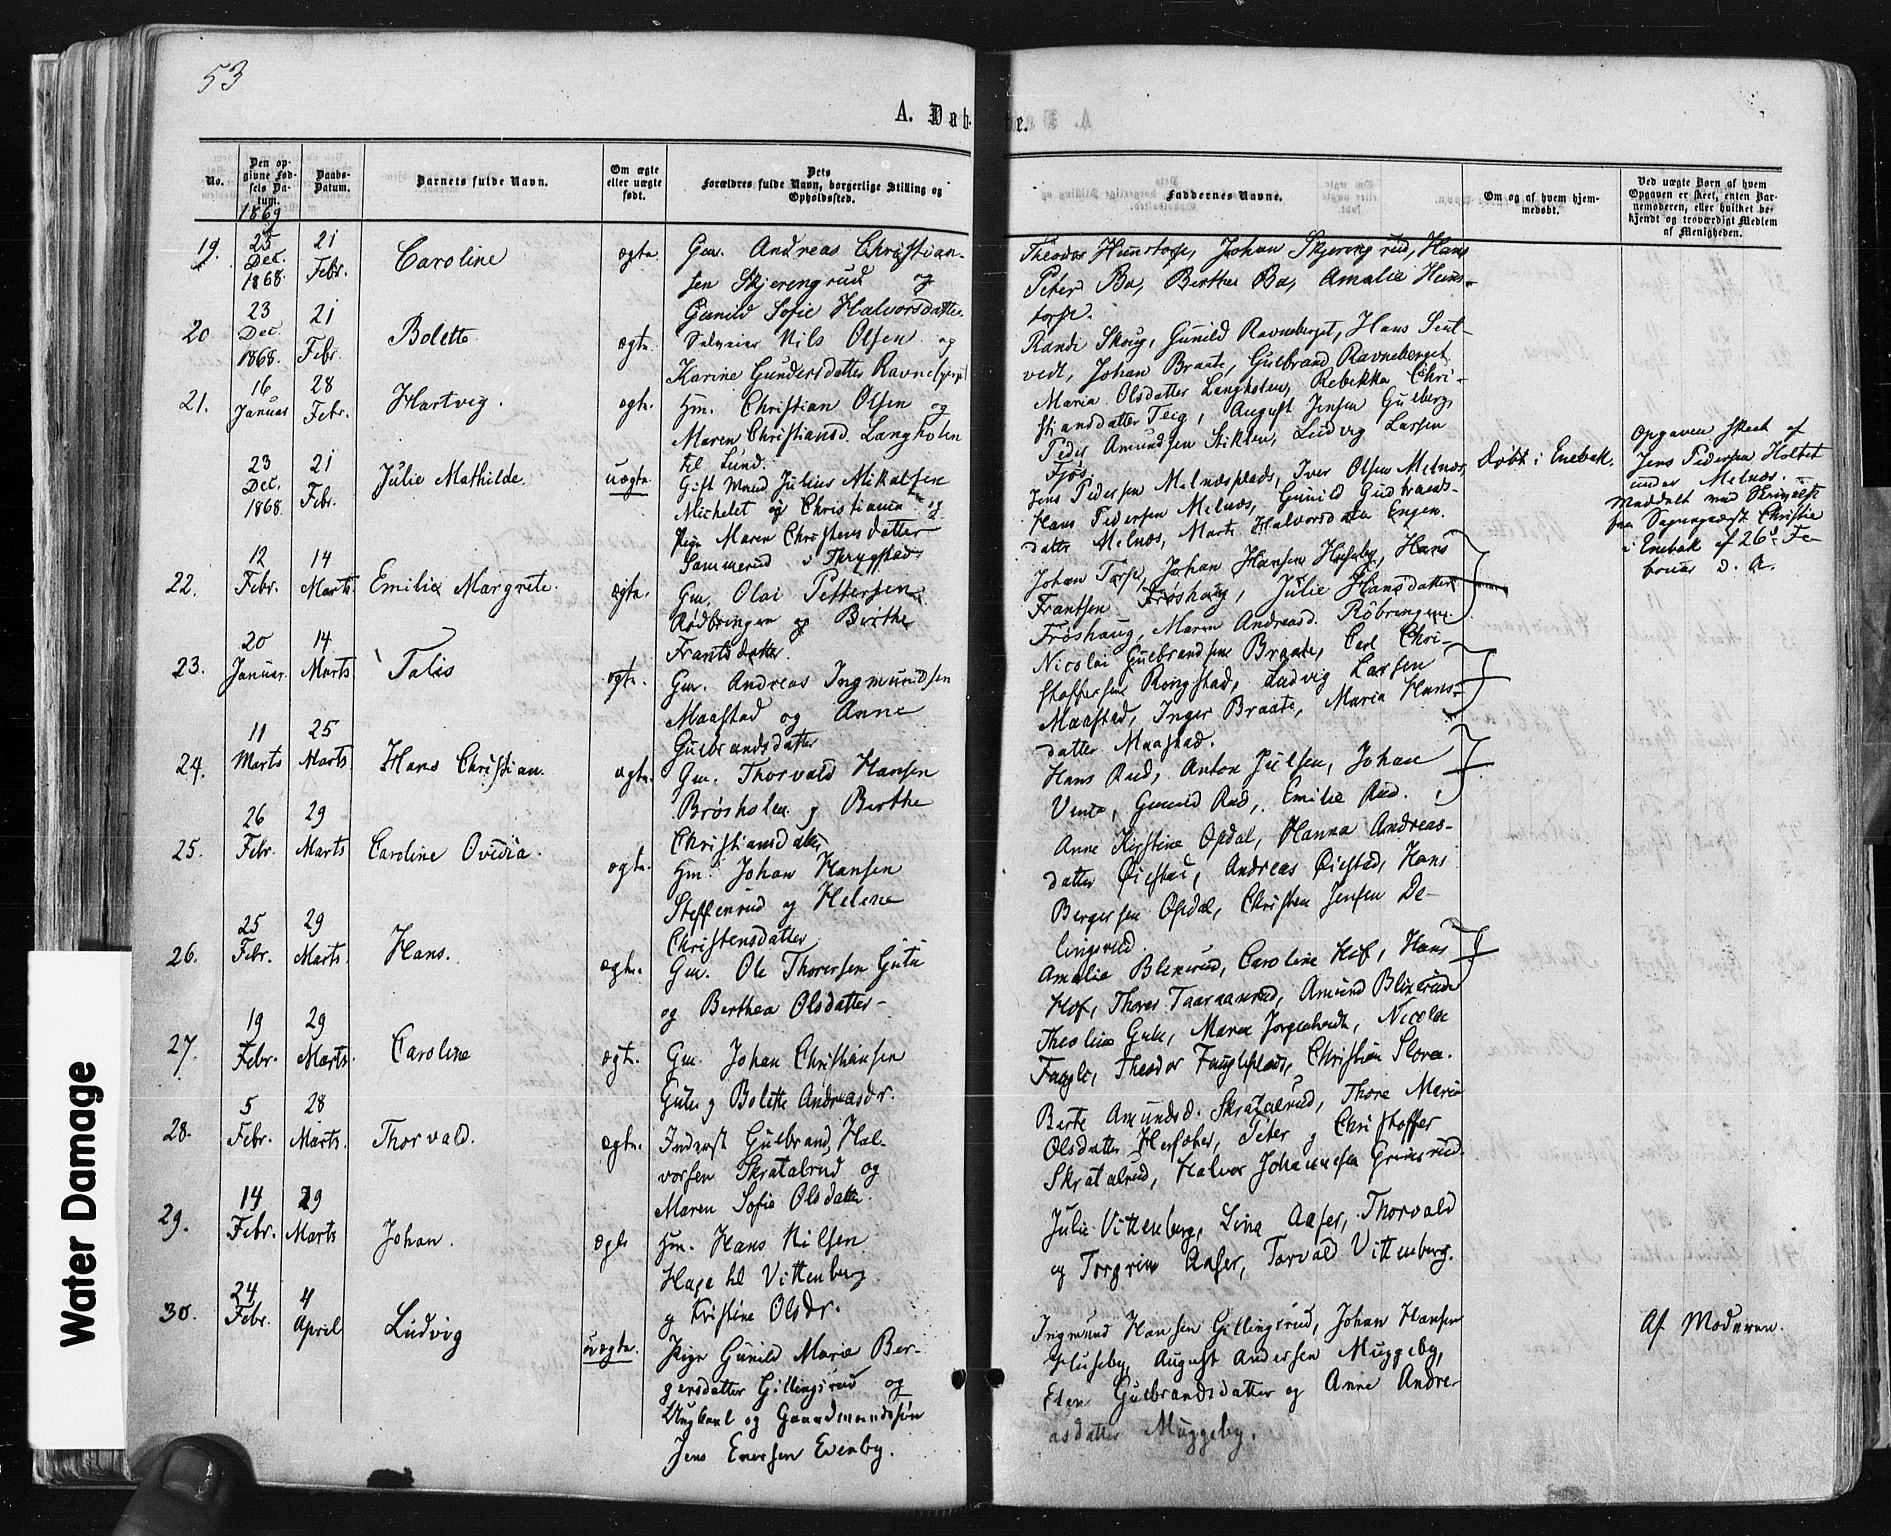 53
A. Døbte.
No.
Den opgivne Fødsels Datum.
Daabs-Datum.
Barnets fulde Navn.
Om ægte eller uægte født.
Dets Forældres fulde Navn, borgerlige Stilling og Opholdssted.
Faddernes Navne.
Om og af hvem hjemmedøbt.
Ved uægte Børn af hvem Opgaven er skeet, enten Barnemoderen, eller hvilket bekjendt og troværdigt Medlem af Menigheden.
1869
19. 25 Dec. 1868 21 Febr. Caroline ægte Gm. Andreas Christian-
sen Skjerengrud og
Gunild Sofie Halvorsdatter
Theodor Hunstorp, Johan Skjerengrud, Hans
Peter Bø, Berthe Bø, Amalie Huns-
torp.
20 23 Dec. 1868. 21 Febr. Bolette ægte Selveier Nils Olsen og
Karine Gundersdatter Ravneberget
Randi Skoug, Gunild Ravneberget, Hans
vedt, Johan Braate, Gulbrand Ravneberget
21. 16 Januar 28 Febr. Hartvig. ægte. Hm. Christian Olsen og
Maren Christiansd. Langholen
til Lund.
Maria Olsdatter Langholen, Rebekka Chri-
stiansdatter Teig, August Jensen Gulberg,
Peder Amundsen Stiklen, Ludvig Larsen
Fjøs.
23 Dec. 1868. 21 Febr. Julie Mathilde. uægte Gift Mand Julius Mikalsen
Michelet og Christiania og
Pige Maren Christensdatter
Sommerud i Thrygstad.
Jens Pedersen Melnæsplads, Iver Olsen Melnæs,
Hans Pedersen Melnæs, Gunild Gudbrands-
datter Melnæs, Marte Halvorsdatter Engen.
døbt i Enebak.
Opgaven skeet af
Jens Pedersen Holtet
under Melnæs.
Meddelt med Skrivelse
fra Sogneprest Christie
i Enebak af 26de Fe-
bruar d. A.
22. 12 Febr. 14 Marts Emilie Margrete. ægte. Gm. Olai Pettersen
Rødbringen og Birthe
Frantsdatter.
Johan Torp, Johan Hansen Huseby, Hans
Frantsen Frøshaug, Julie Hansdatter
Frøshaug, Maren Andreasd. Röbringen.
23. 20 Januar. 14 Marts Talis ægte. Gm. Andreas Ingmundsen
Maastad og Anne
Gulbrandsdatter
Nicolai Gulbrandsen Braate, Carl Chri-
stoffersen Ringstad, Ludvig Larsen
Maastad, Inger Braate, Maria Hans-
datter Maastad.
24. 11 Marts 25 Marts Hans Christian. ægte. Gm. Thorvald Hansen
Brøsholen og Berthe
Christiansdatter
Hans Rud, Anton Julsen, Johan
Vente, Gunild Rud, Emilie Rud.
25. 26 Febr. 29 Marts Caroline Ovidia. ægte. Hm. Johan Hansen
Steffenrud og Helene
Christensdatter
Anne Kirstine Opdal, Hanna Andreas-
datter Øiestad, Andreas Øiestad, Hans
Bergersen Opdal, Christen Jensen De-
lingsrud.
26. 25 Febr. 29 Marts. Hans. ægte. Gm. Ole Thoresen Gute
og Berthea Olsdatter
Amalie Blixrud, Caroline Hof, Hans
Hof, Thorer Taaraanrud, Amund Blixrud
27. 19 Febr. 29 Marts. Caroline ægte. Gm. Johan Christiansen
Gute og Bolette Andreasdr.
Theoline Gute, Maren Jorgenhvedt, Nicolai
Fuugle, Theodor Fuugleplads, Christian Slora.
28. 5 Febr. 28 Marts. Thorvald. ægte. Inderst Gulbrand Hal-
vorsen Skratalrud og
Maren Sofie Olsdatter.
Berte Amundsd. Skratalrud, Thore Maria
Olsdatter Hersæter, Peter og Christoffer
Skratalrud, Halvor Johannesen Grinsrud.
29. 14 Febr. 29 Marts Johan. ægte Hm. Hans Nilsen
Hage til Vittenberg
og Kristine Olsdr.
Julie Vittenberg, Lina Aaser, Thorvald
og Torgrim Aaser, Torvald Vittenberg.
30. 24 Febr. 4 April Ludvig uægte. Pige Gunild Marie Ber-
gersdatter Gillingsrud og
Ungkarl og Gaardmandssøn
Jens Evensen Evenby.
Ingmund Hansen Gillingsrud, Johan Hansen
Huseby, August Andersen Muggeby,
Elen Gulbrandsdatter og Anne Andre-
asdatter Muggeby.
Af Moderen.
Water Damage